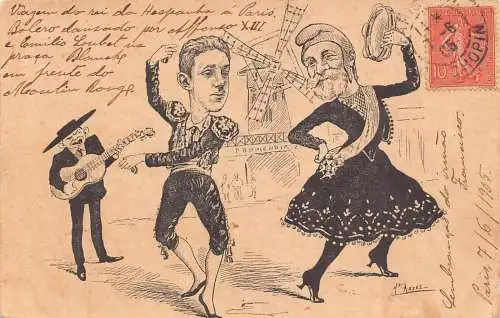 Viagem do rei da Hespanha á Paris.
Bólero dansado por Affonso XIII
e Emilio Loubet na
praça Blanche
em frente do
Moulin Rouge
10
Lembrança do irmão
Francisco.
Paris 7/6/1905